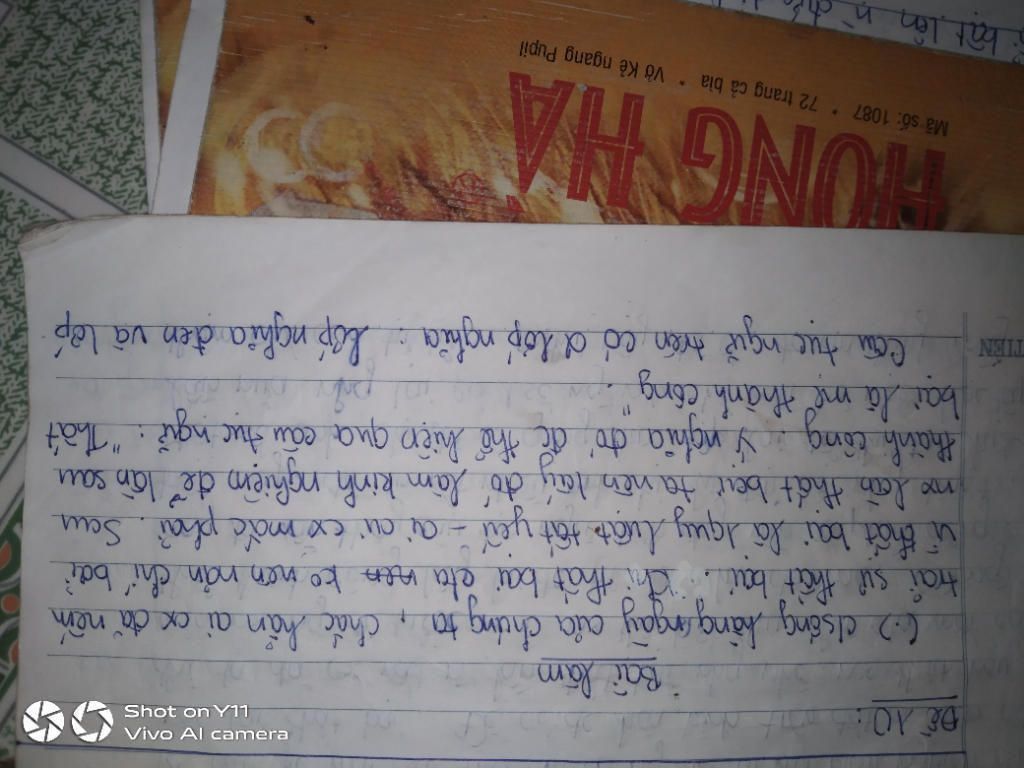 Đề 10:
Bài làm
(.) csống hàng ngày của chúng ta, chắc hẳn ai cx đã nếm
trải sự thất bại. Khi thất bại cta ko nên nản chí bởi
vì thất bại là quy luật tất yếu - ai ai cx mắc phải. Sau
mx lần thất bại ta nên lấy đó làm kinh nghiệm để lần sau
thành công. Ý nghĩa đó đc thể hiện qua câu tục ngữ: "Thất
bại là mẹ thành công".
Câu tục ngữ trên có 2 lớp nghĩa: Lớp nghĩa đen và lớp
TIÊN
HONG HA
Mã số: 1087 * 72 trang cả bìa * Vở Kẻ ngang Pupil
bật lên
Shot on Y11
Vivo AI camera